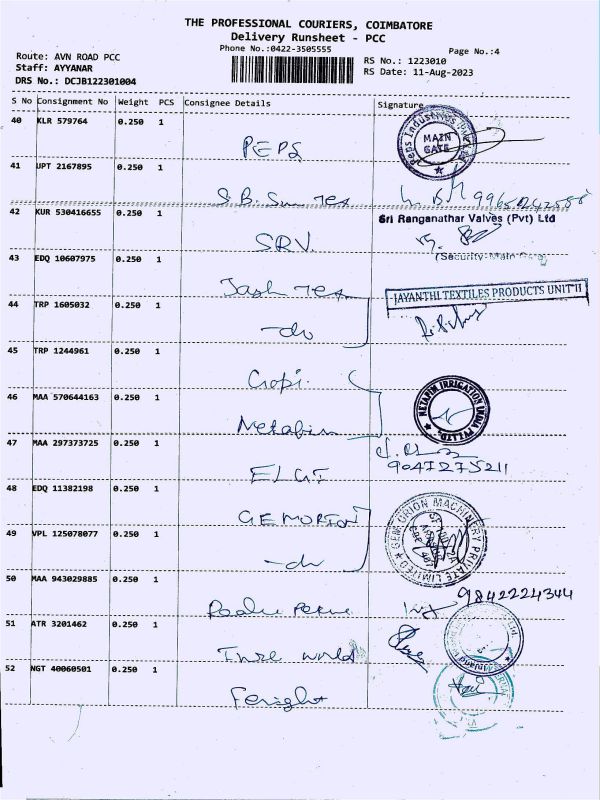 THE PROFESSIONAL COURIERS, COIMBATORE
Delivery Runsheet - PCC
Phone No.:0422-3505555
Page No.:4
Route: AVN ROAD PCC
Staff: AYYANAR
DRS No.: DCJB122301004
RS No.: 1223010
RS Date: 11-Aug-2023
S No Consignment No Weight PCS Consignee Details Signature
40 KLR 579764 0.250 1
PEPS
Peps Industries Pvt
MAIN GATE
41 UPT 2167895 0.250 1
S.B.
42 KUR 530416655 0.250 1
Sri Ranganathar Valves (Pvt) Ltd
SRV.
(Security-Main
43 EDQ 10607975 0.250 1
Jash Tex
JAYANTHI TEXTILES PRODUCTS UNIT II
44 TRP 1605032 0.250 1
-do
45 TRP 1244961 0.250 1
Gopi.
46 MAA 570644163 0.250 1
NETAFIM IRRIGATION INDIA PVT LTD.
Netafim
47 MAA 297373725 0.250 1
9047275211
ELGI
48 EDQ 11382198 0.250 1
GEMORION
GEM ORION MACHINERY PRIVATE LIMITED
49 VPL 125078077 0.250 1
-do
50 MAA 943029885 0.250 1
9842224344
51 ATR 3201462 0.250 1
world
52 NGT 40060501 0.250 1